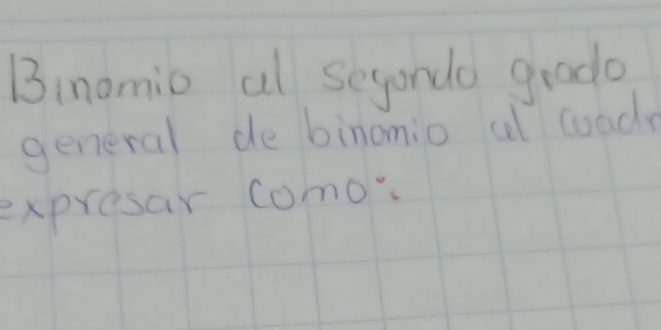 Binomio al segondo grado
general de binomio al cuadr
expresar como: